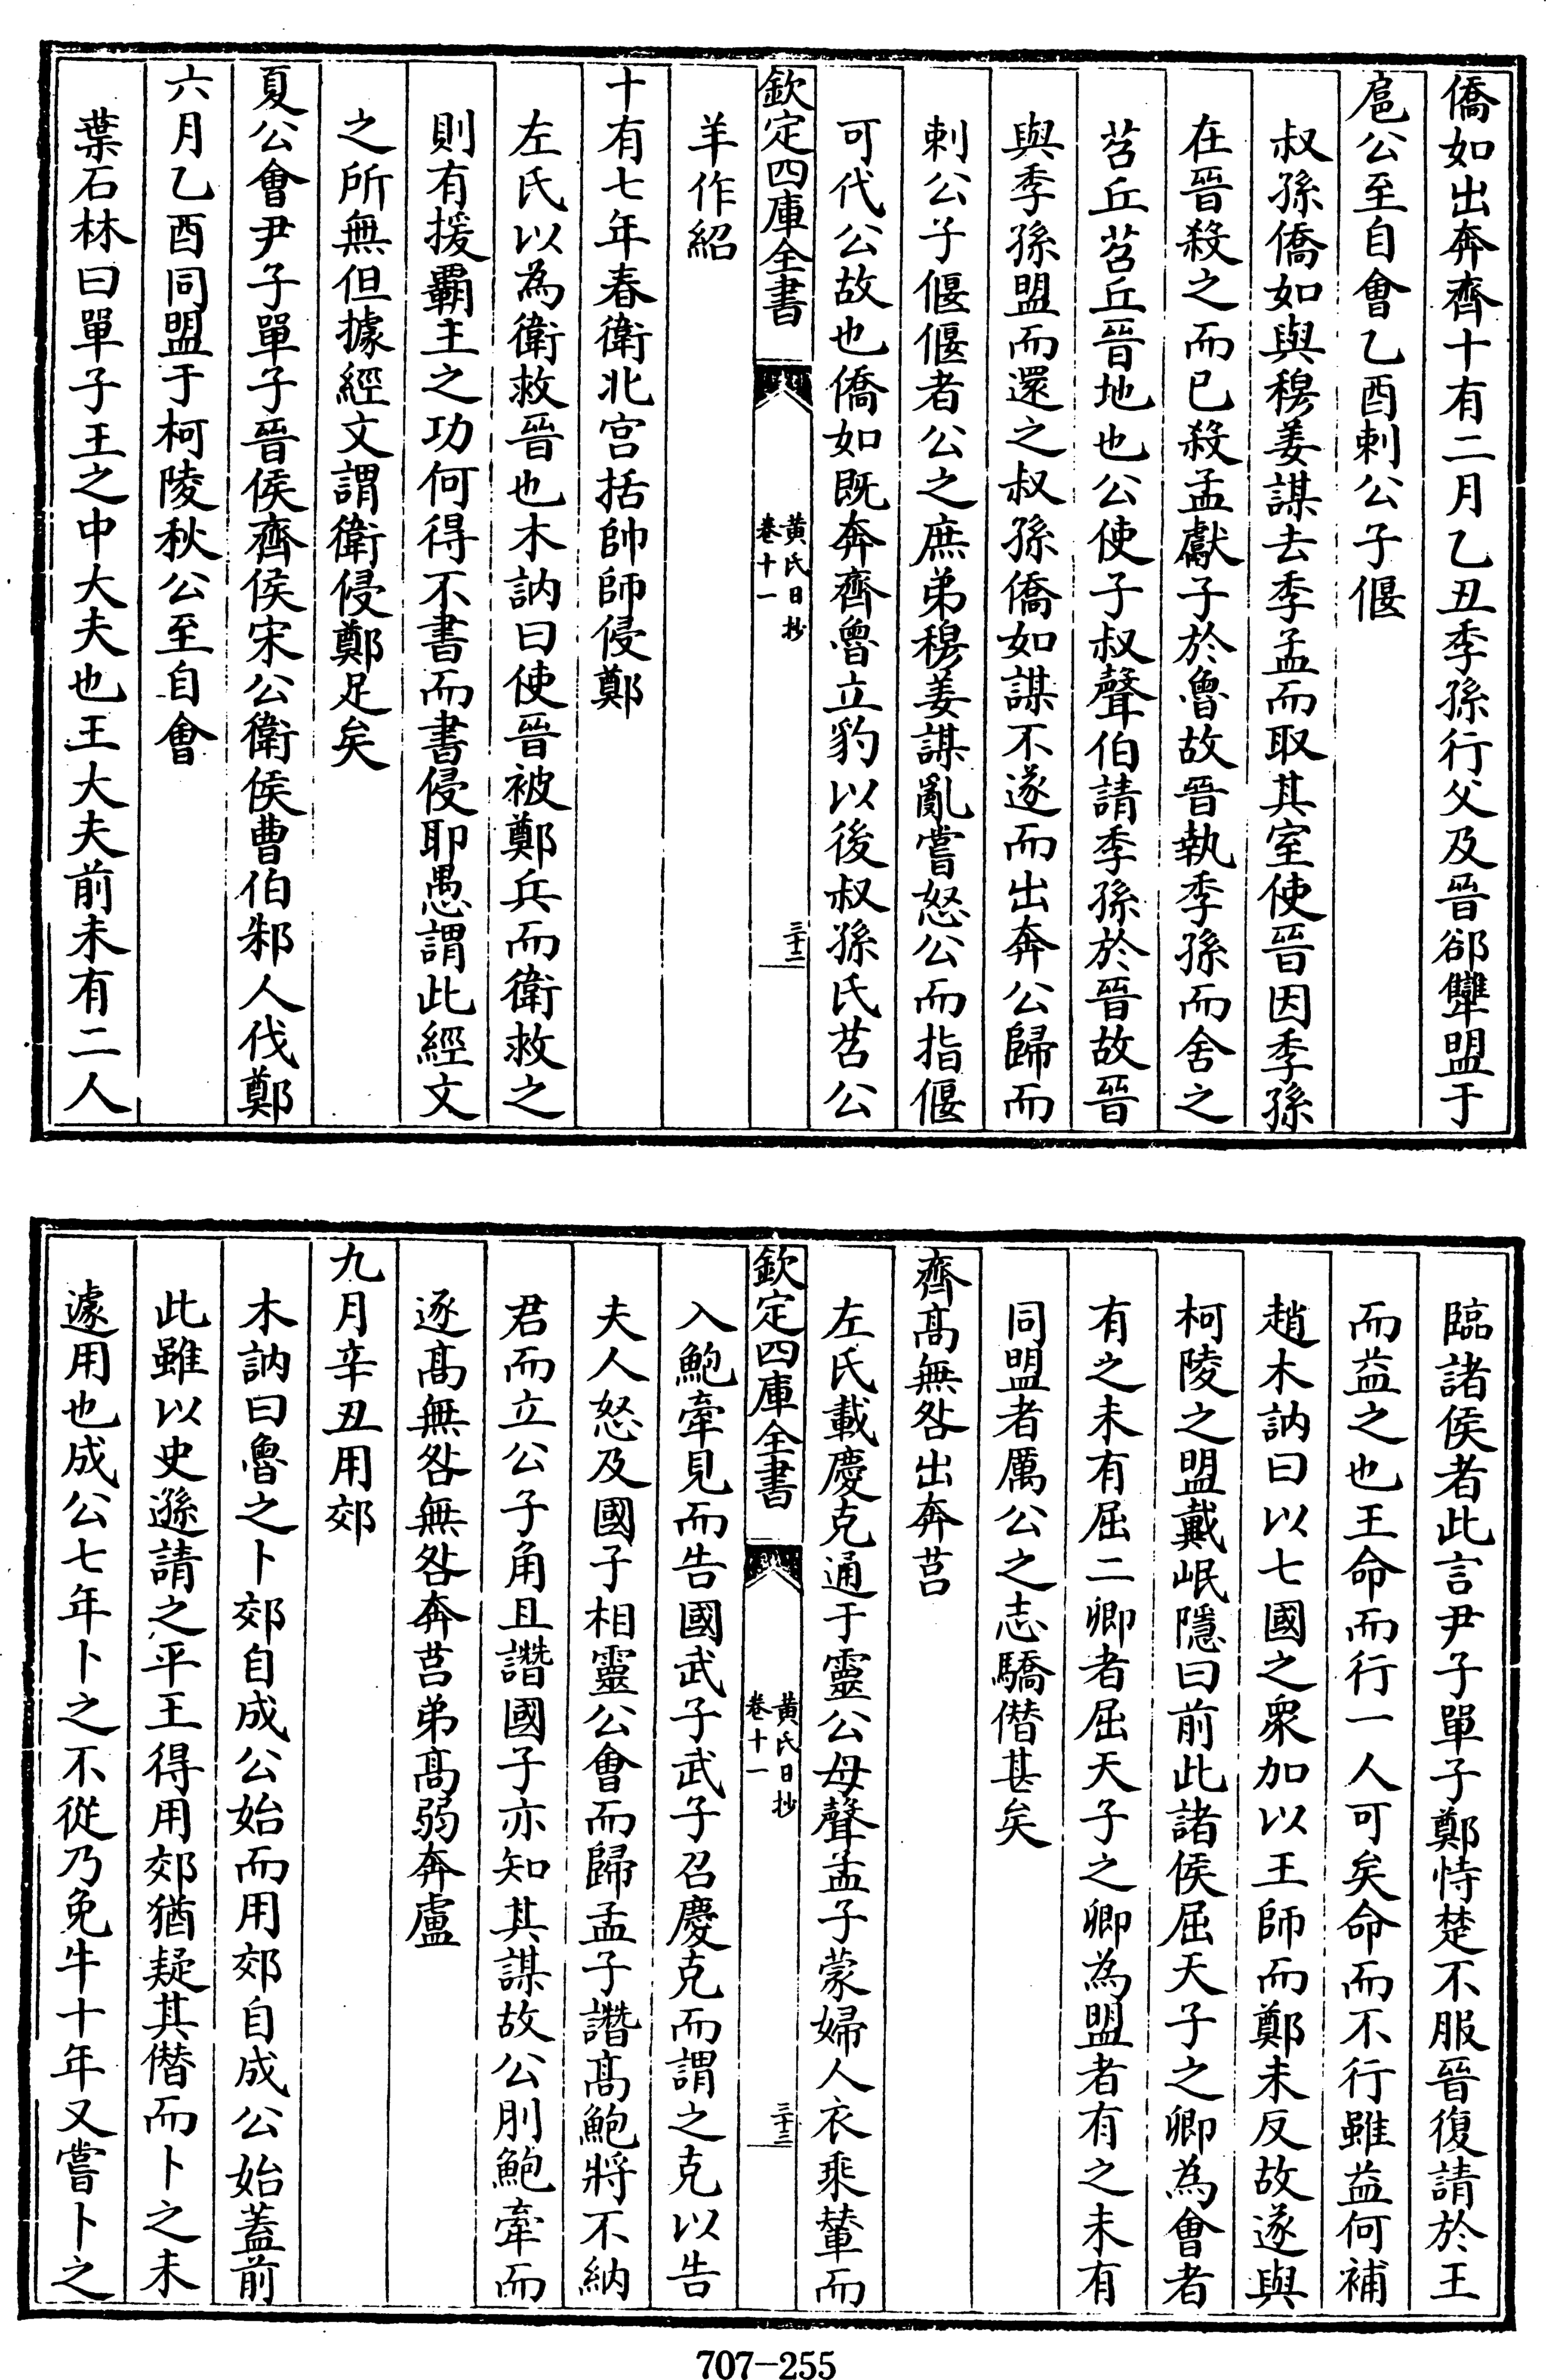 僑如出奔齊十有二月乙丑季孫行父及晉郤犨盟于
扈公至自會乙酉刺公子偃
叔孫僑如與穆姜謀去季孟而取其室使晉因季孫
在晉殺之而已殺孟獻子於魯故晉執季孫而舍之
苕丘苕丘晉地也公使子叔聲伯請季孫於晉故晉
與季孫盟而還之叔孫僑如謀不遂而出奔公歸而
刺公子偃偃者公之庶弟穆姜謀亂嘗怒公而指偃
可代公故也僑如既奔齊魯立豹以後叔孫氏苕公
欽定四庫全書
黄氏日抄
卷十一
三十二
羊作紹
十有七年春衛北宫括帥師侵鄭
左氏以為衛救晉也木訥曰使晉被鄭兵而衛救之
則有援覇主之功何得不書而書侵耶愚謂此經文
之所無但據經文謂衛侵鄭足矣
夏公會尹子單子晉侯齊侯宋公衛侯曹伯邾人伐鄭
六月乙酉同盟于柯陵秋公至自會
葉石林曰單子王之中大夫也王大夫前未有二人
臨諸侯者此言尹子單子鄭恃楚不服晉復請於王
而益之也王命而行一人可矣命而不行雖益何補
趙木訥曰以七國之衆加以王師而鄭未反故遂與
柯陵之盟戴岷隱曰前此諸侯屈天子之卿為會者
有之未有屈二卿者屈天子之卿為盟者有之未有
同盟者厲公之志驕僭甚矣
齊髙無咎出奔莒
左氏載慶克通于靈公母聲孟子蒙婦人衣乘輦而
欽定四庫全書
黄氏日抄
卷十一
三十三
入鮑牽見而告國武子武子召慶克而謂之克以告
夫人怒及國子相靈公會而歸孟子譛髙鮑將不納
君而立公子角且譛國子亦知其謀故公刖鮑牽而
逐髙無咎無咎奔莒弟髙弱奔盧
九月辛丑用郊
木訥曰魯之卜郊自成公始而用郊自成公始蓋前
此雖以史遜請之平王得用郊猶疑其僭而卜之未
遽用也成公七年卜之不從乃免牛十年又嘗卜之
707-255